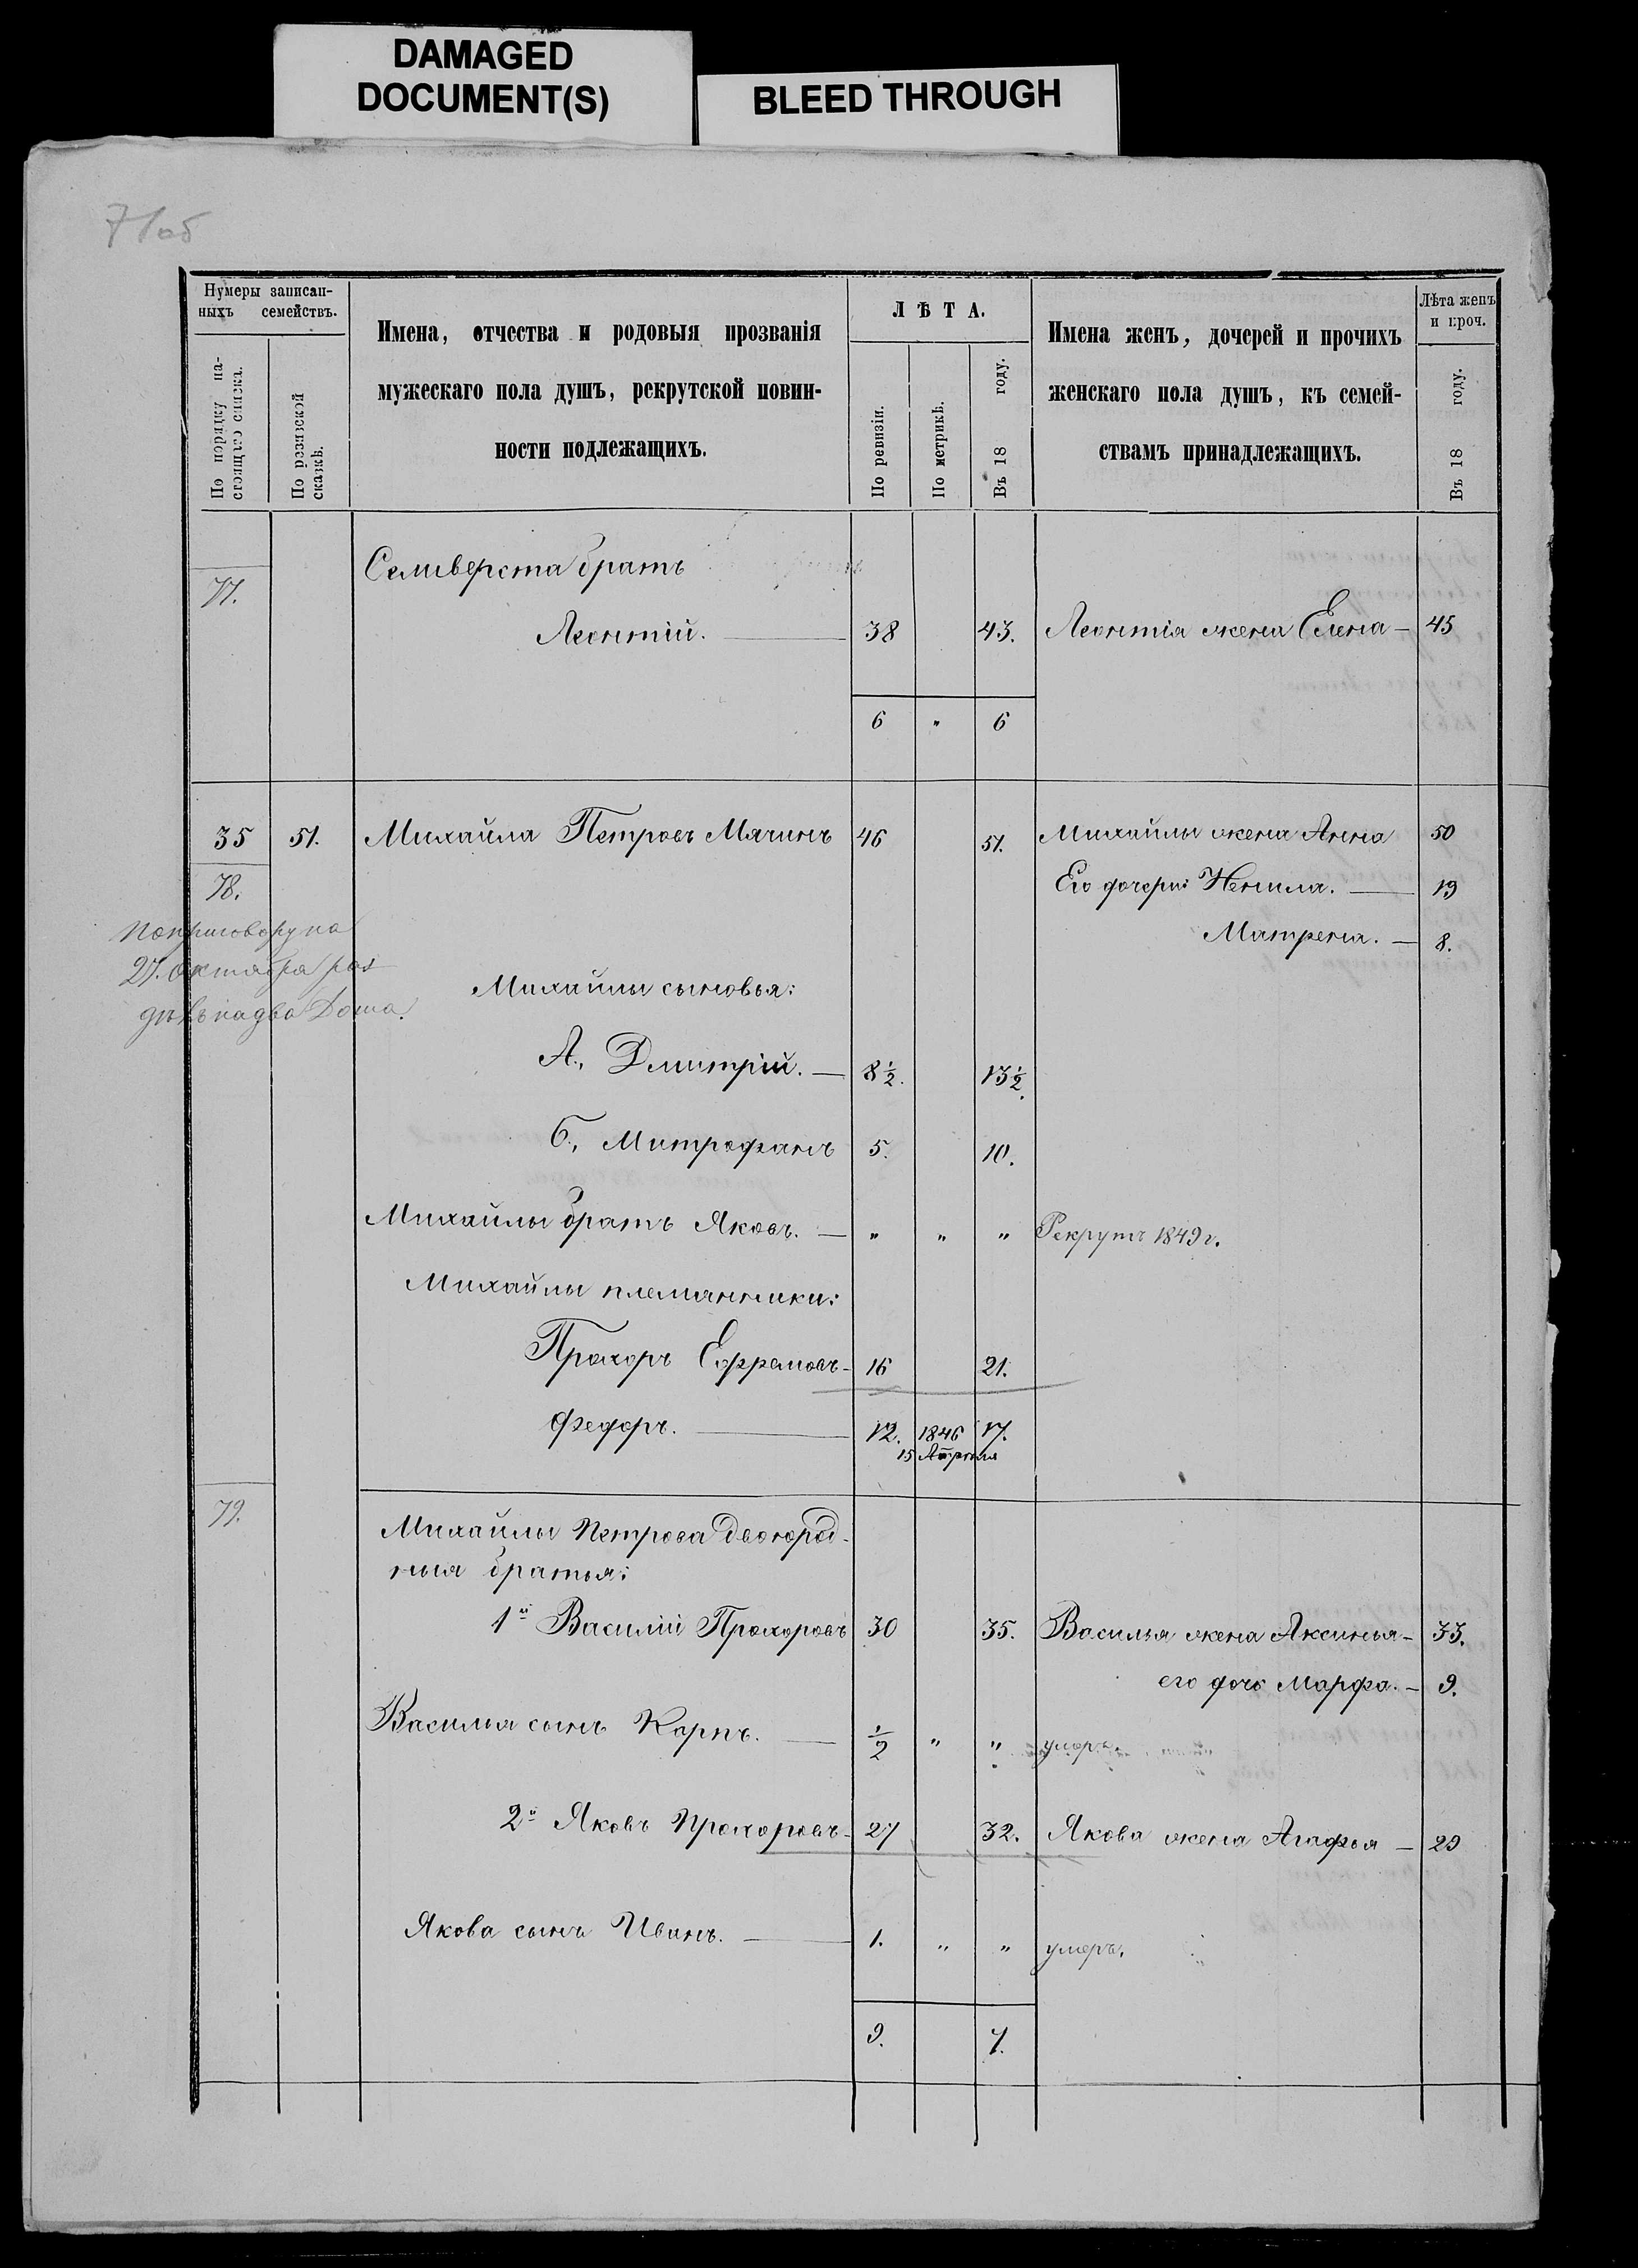 DAMAGED
DOCUMENT(S)
BLEED THROUGH
71об
Нумеры записан-
ныхъ семействъ.
По порядку на-
стоящаго списка.
По ревизской
сказкѣ.
Имена, отчества и родовыя прозванія
мужескаго пола душъ, рекрутской повин-
ности подлежащихъ.
ЛѢТА.
По ревизіи.
По метрикѣ.
Въ 18 году.
Имена женъ, дочерей и прочихъ
женскаго пола душъ, къ семей-
ствамъ принадлежащихъ.
Лѣта женъ
и проч.
Въ 18 году.
77.
Селиверста братъ
Леонтій. — 38 43. Леонтія жена Елена — 45
6 " 6
35 51. Михайла Петровъ Мячинъ 46 51. Михайлы жена Анна 50
78.
Его дочери: Ненила. — 19
Матрена. — 8.
По приговору на
27. октября раз
дѣлъ на два Дома.
Михайлы сыновья:
А., Дмитрій. — 8½. 13½.
Б., Митрофанъ 5. 10.
Михайлы братъ Яковъ. — " " " Рекрутъ 1849 г.
Михайлы племянники:
Прохоръ Ефремовъ - 16 21.
Федоръ. — 12. 1846 17.
15 Апреля
79.
Михайлы Петрова двоюрод-
ныя братья:
1й Василій Прохоровъ 30 35. Василья жена Аксинья - 33.
его дочь Марфа. - 9.
Василья сынъ Карпъ. — ½ " " умеръ.
2й Яковъ Прохоровъ - 27 32. Якова жена Агафья — 29
Якова сынъ Иванъ. — 1. " " умеръ.
9. 7.